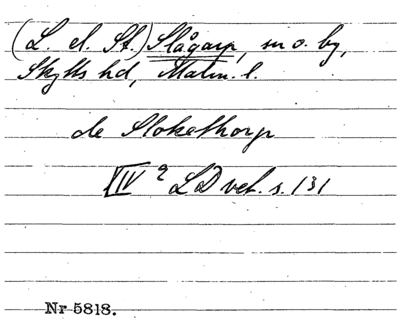 (L. el. St.) Slågarp, sn o. by,
Skytts hd, Malm. l.
de Slokethorp
XIV 2 LD vet. s. 131
Nr 5818.